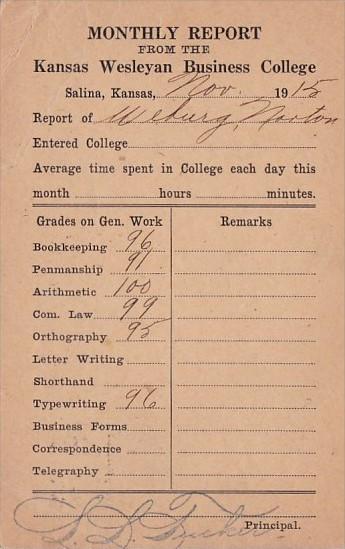 MONTHLY REPORT
FROM THE
Kansas Wesleyan Business College
Salina, Kansas, Nov. 1915
Report of Weburg, Norton
Entered College
Average time spent in College each day this
month hours minutes.
Grades on Gen. Work Remarks
Bookkeeping 96
Penmanship 91
Arithmetic 100
Com. Law 99
Orthography 95
Letter Writing
Shorthand
Typewriting 96
Business Forms
Correspondence
Telegraphy
L. L. Tucker Principal.